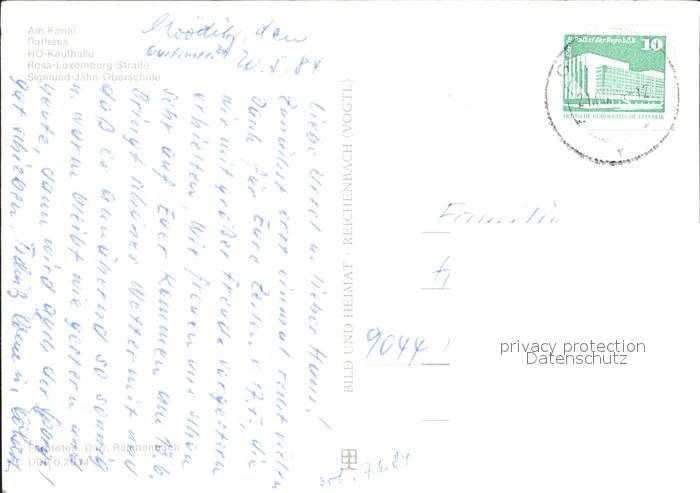 Am Kanal
Rathaus
HO-Kaufhalle
Rosa-Luxemburg-Straße
Sigmund-Jähn-Oberschule
den
20.5.84
Liebe Ursel u. lieber Hans!
Zunächst erst einmal recht vielen
Dank für Eure Zeilen v. 17.5., die
wir mit großer Freude vorgestern
erhielten. Wir freuen uns schon
sehr auf Euer Kommen am
Bringt schönes Wetter mit und
daß es annähernd so sonnig
u. warm bleibt wie gestern und
heute, dann wird auch der
gut
BILD UND HEIMAT · REICHENBACH (VOGTL)
Palast der Republik
10
DEUTSCHE DEMOKRATISCHE REPUBLIK
Familie
H
9044
privacy protection
Datenschutz
Farbfotos: Darr, Reichenbach
7.6.84